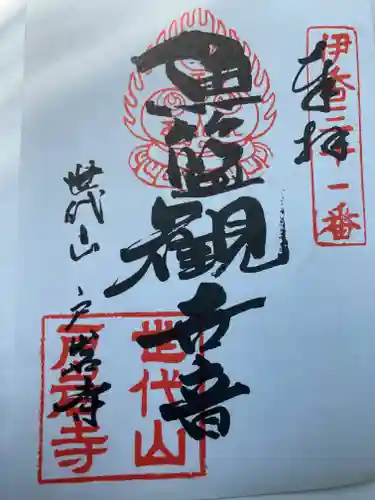 奉拝
伊香三十一番
魚籃觀世音
世代山 戸岩寺
世代山
戸岩寺